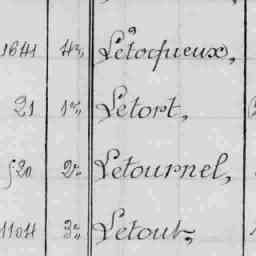 1641 4e, Létocqueux,
21 1er, Letort,
520 2e Letournel,
1104 3e Letout,